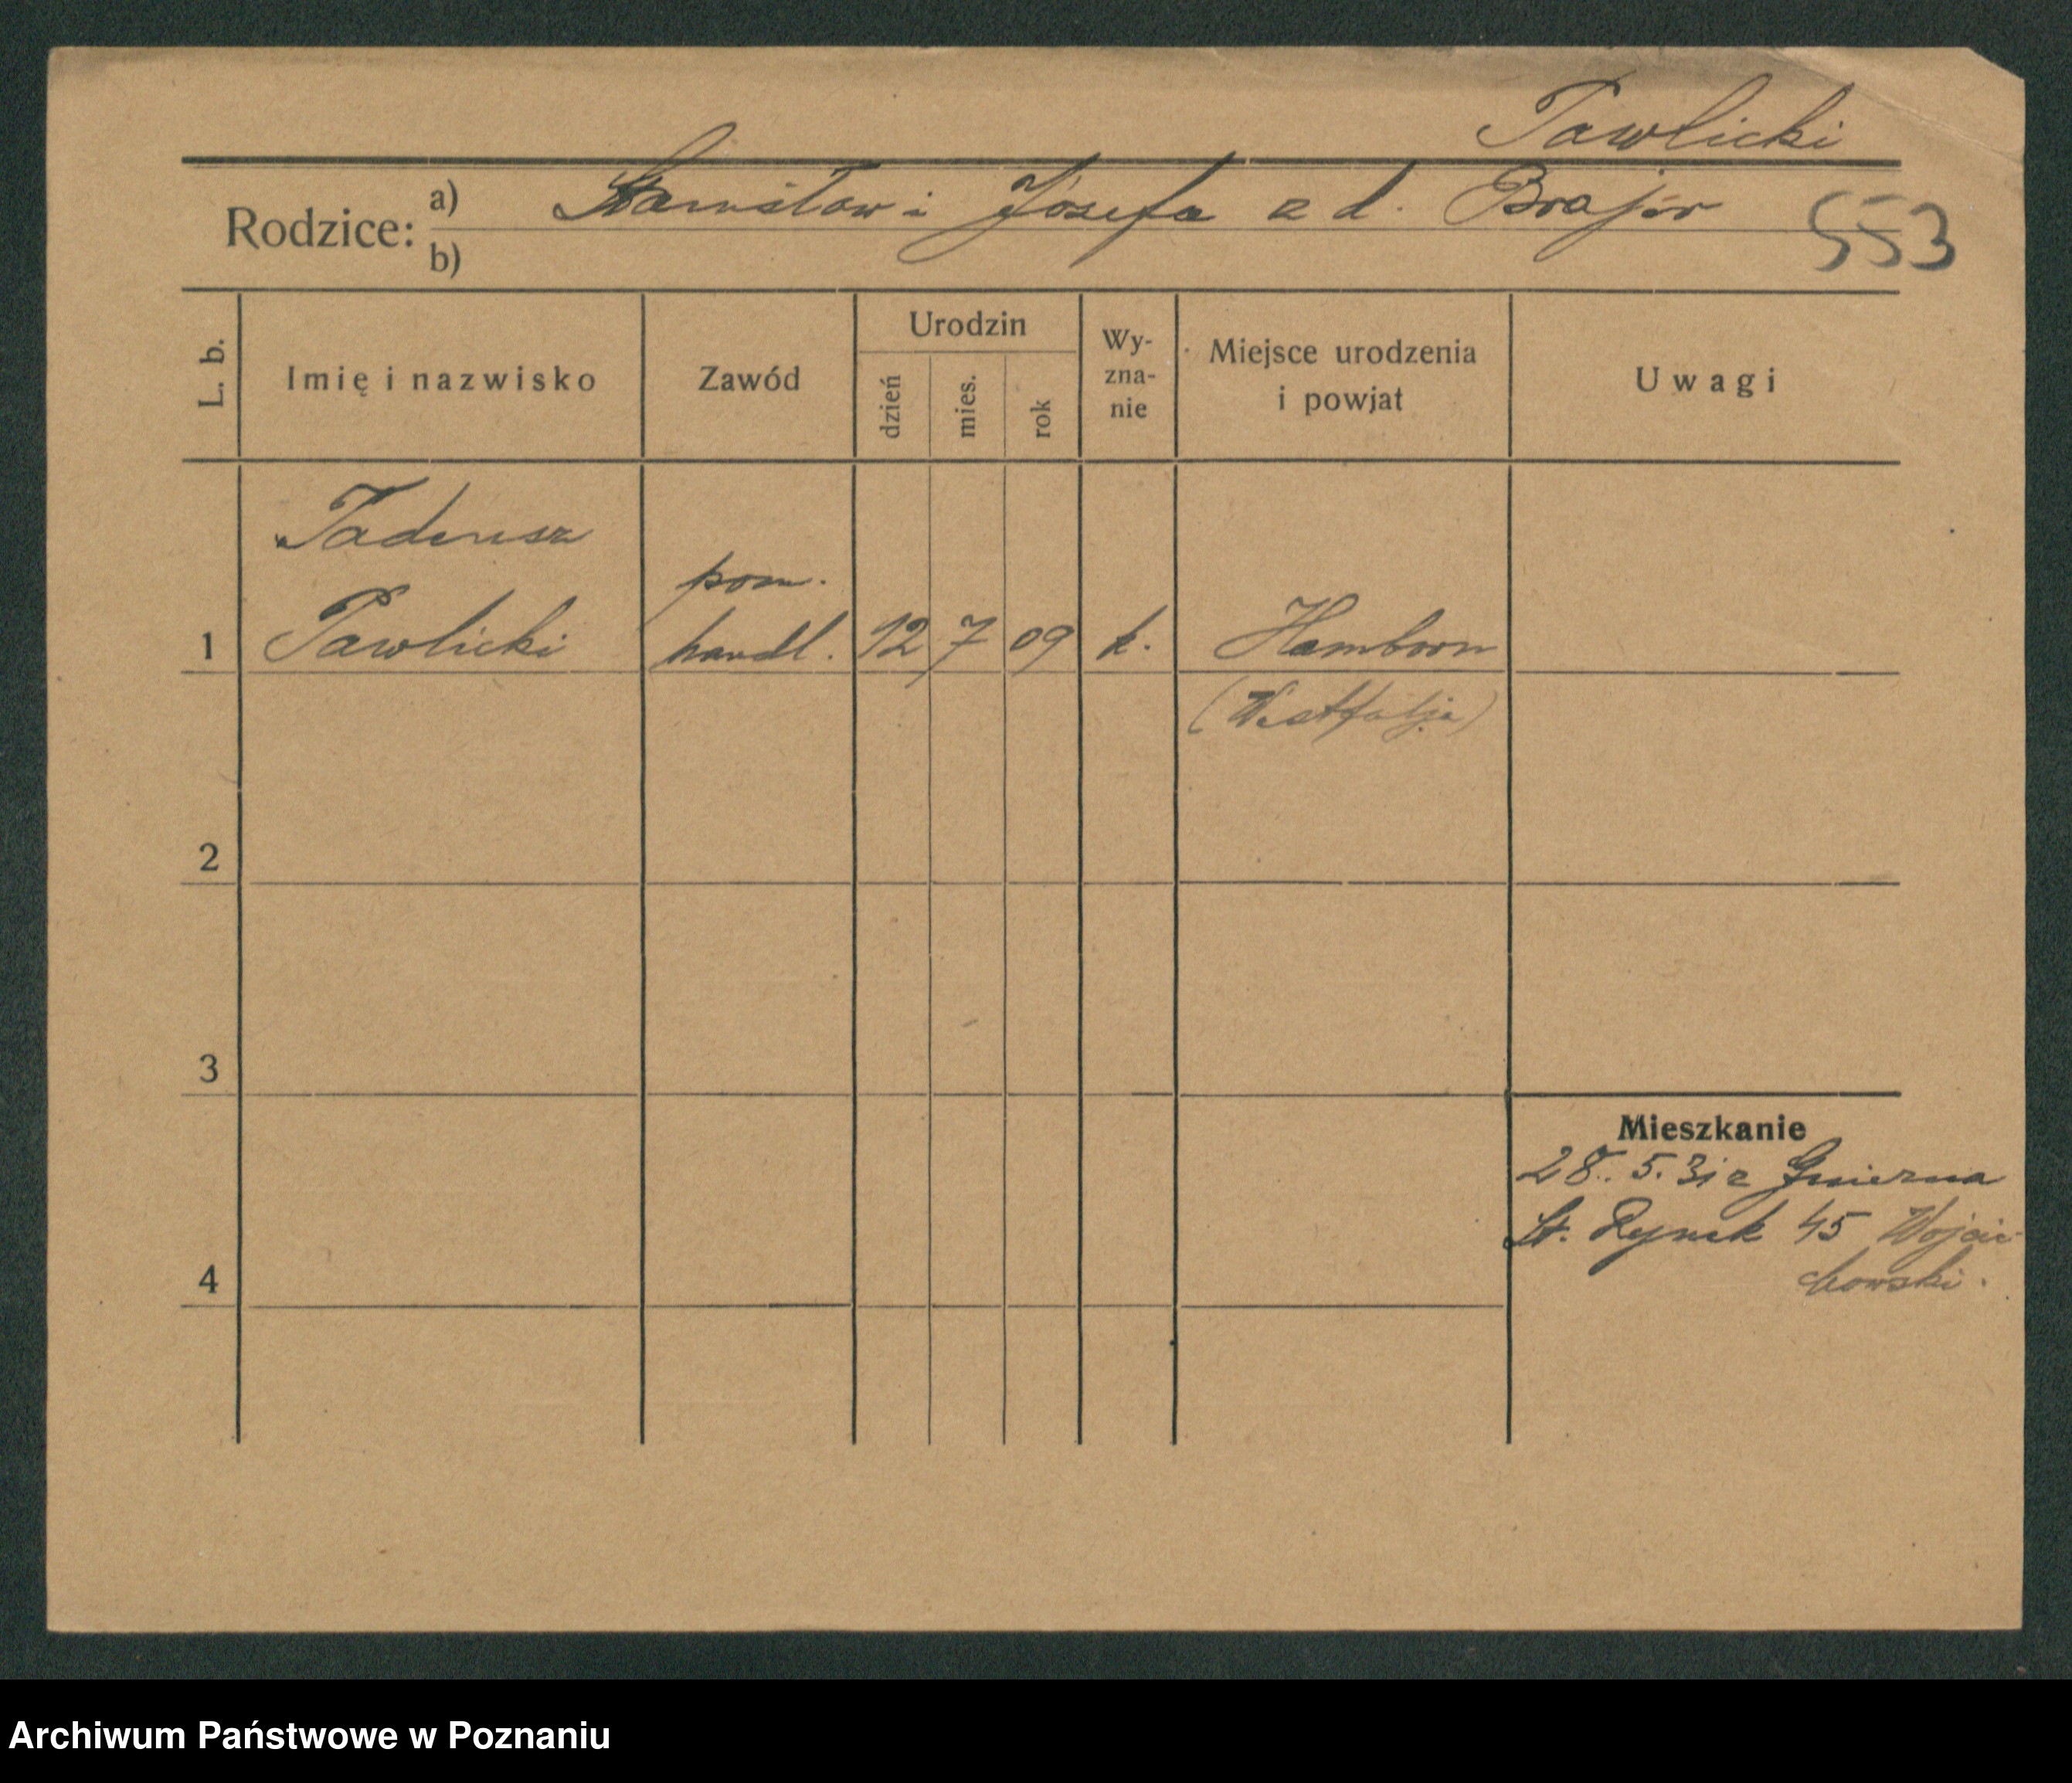 Pawlicki
Rodzice: a) Stanisław i Józefa z d. Brajer
b)
553
L. b.
Imię i nazwisko
Zawód
Urodzin
dzień
mies.
rok
Wy-
zna-
nie
Miejsce urodzenia
i powjat
Uwagi
Tadeusz
pom.
1 Pawlicki handl. 12 7 09 k. Hamborn
(Westfalja)
2
3
4
Mieszkanie
28. 5. 31 z Gniezna
St. Rynek 45 Wojcie-
chowski.
Archiwum Państwowe w Poznaniu